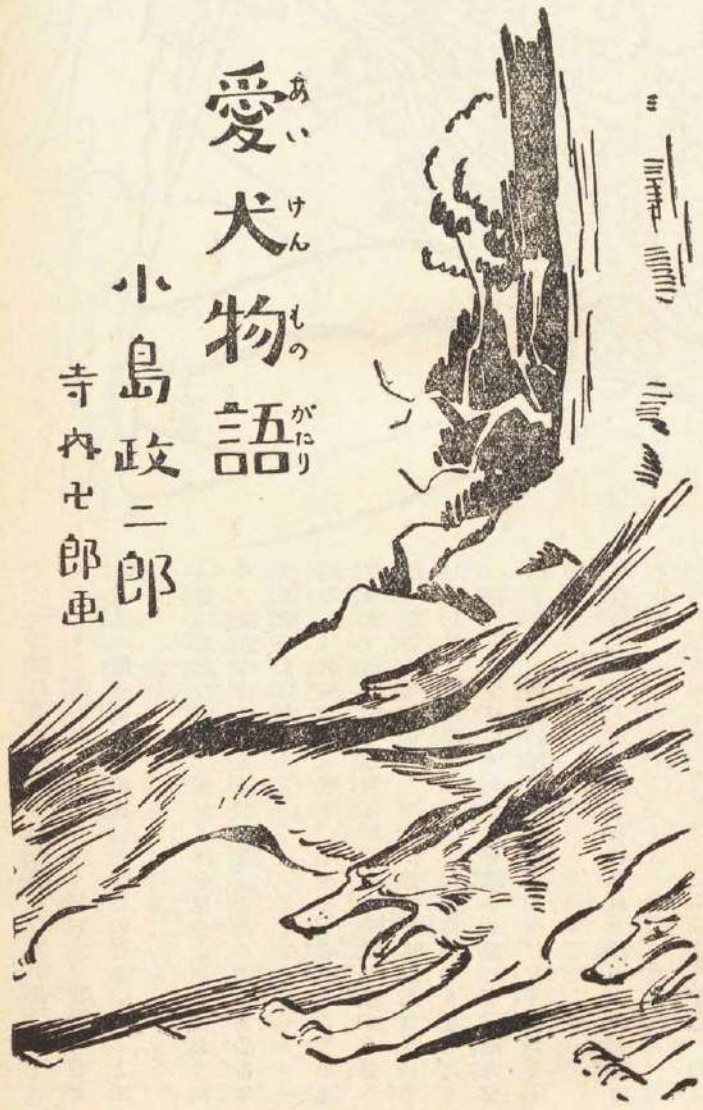 愛犬物語
あいけんものがたり
小島政二郎
寺内七郎画